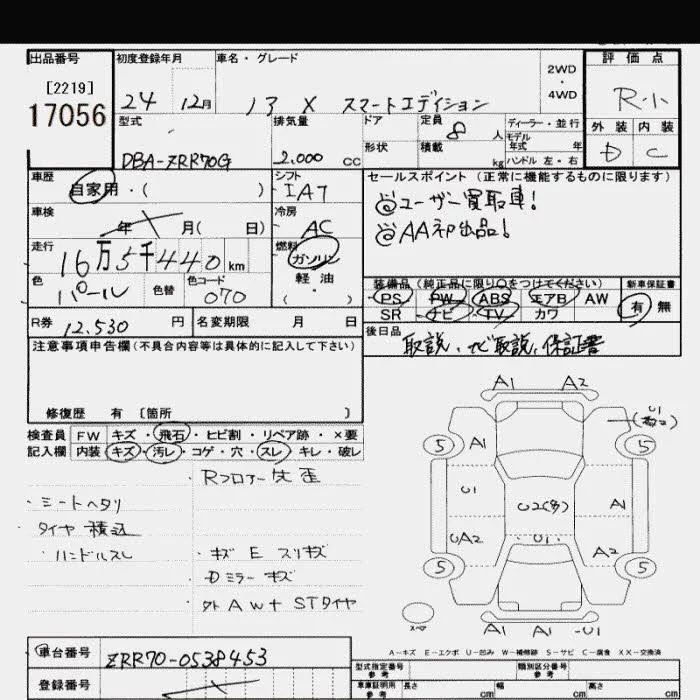 出品番号 初度登録年月 車名・グレード 2WD・4WD 評価点
[2219]
17056
24 12月 ノア X スマートエディション R・小
型式 排気量 ドア 定員 8 人 ディーラー・並行 外装 内装
DBA-ZRR70G 2.000 cc 形状 積載 kg モデル年式 年 ハンドル 左・右 D C
車歴 自家用・( ) シフト IA7 セールスポイント(正常に機能するものに限ります)
◎ユーザー買取車!
◎AA初出品!
車検 年 月( 日) 冷房 AC
走行 16万5千440km 燃料 ガソリン・軽油・( )
色 パール 色替 色コード 070
装備品(純正品に限り○をつけてください) 新車保証書
PS PW ABS エアB AW 有 無
SR ナビ TV カワ
R券 12.530 円 名変期限 月 日
後日品 取説、ナビ取説、保証書
注意事項申告欄(不具合内容等は具体的に記入して下さい)
修復歴 有 〔箇所 〕
検査員記入欄 FW キズ・飛石・ヒビ割・リペア跡・×要
内装 キズ・汚レ・コゲ・穴・スレ・キレ・破レ
・シートヘタリ
タイヤ積込
・ハンドルスレ
・キズ E スリキズ
Dミラーキズ
外AW+STタイヤ
A1 A2
U1
5 A1 5
U1 U2(多) A1
UA2 U1 A2
5 5
スペア
A1 A1 U1
A-キズ E-エクボ U-凹み W-補修跡 S-サビ C-腐食 XX-交換済
車台番号 ZRR70-0538453
登録番号
型式指定番号 参考 類別区分番号 参考
車庫証明用 参考 長さ cm 幅 cm 高さ cm